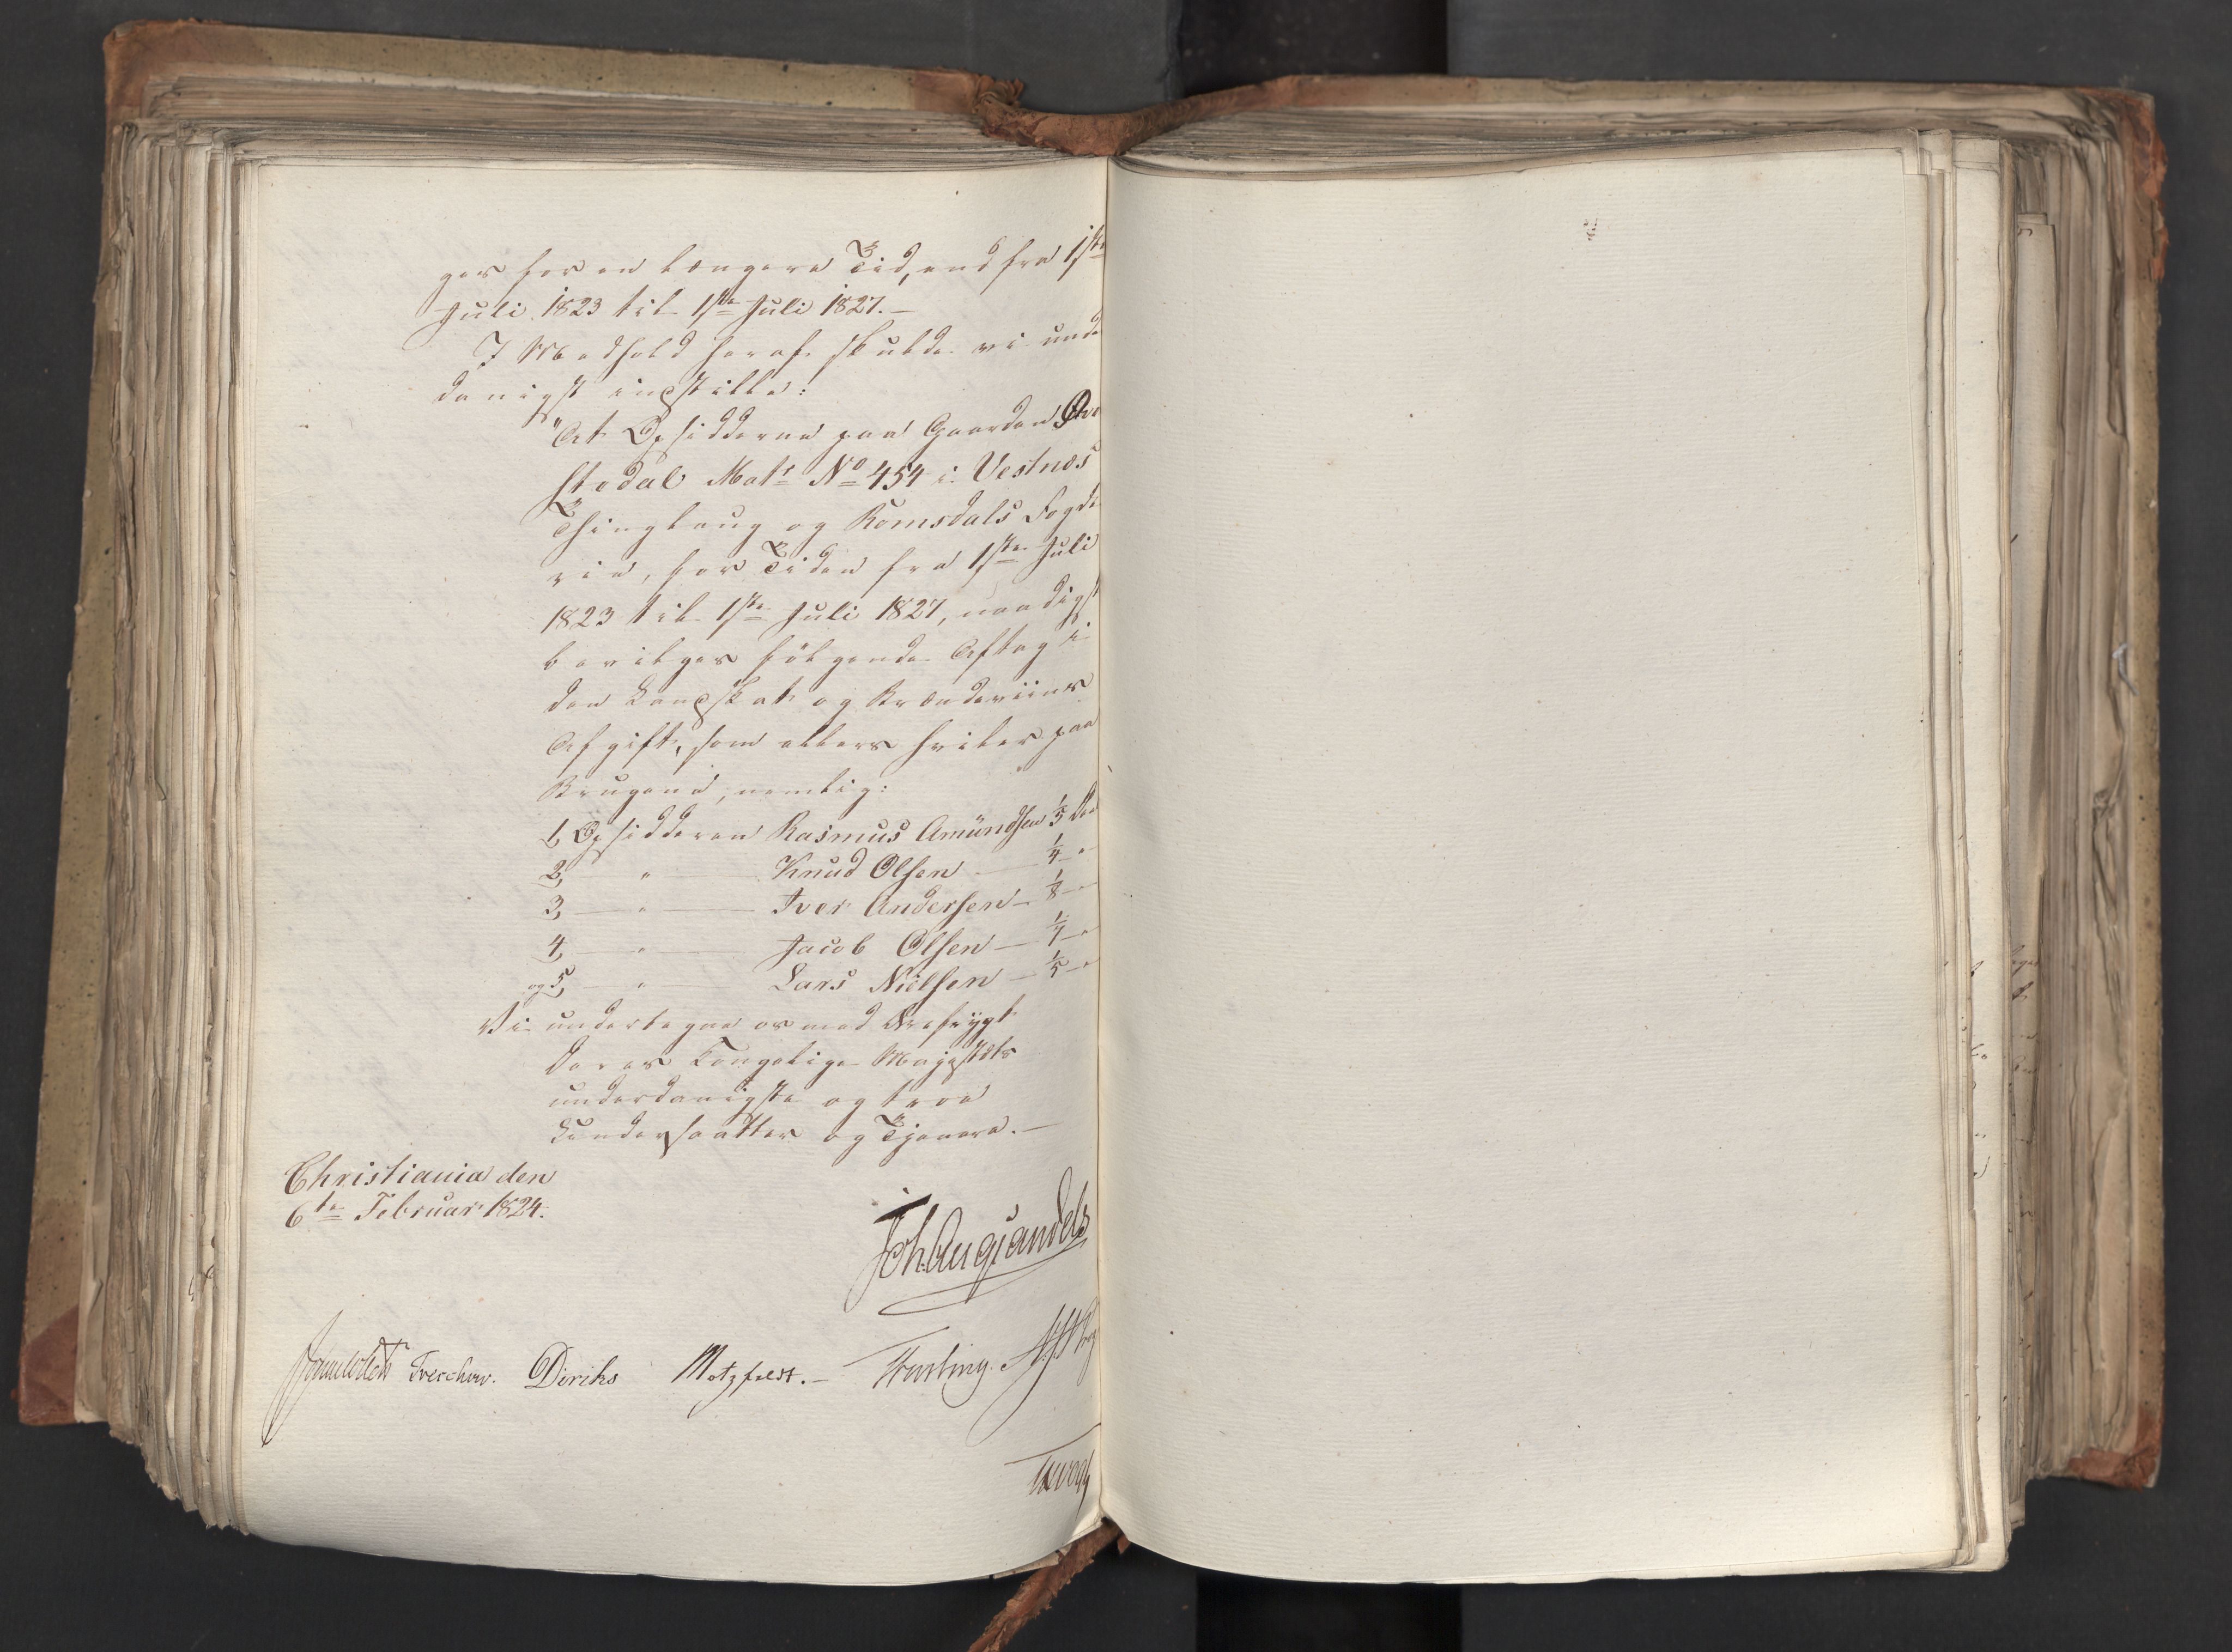 ges for en længere Tid, end fra 1ste
Juli 1823 til 1ste Juli 1827.–
I Medhold heraf skulde vi unde
danigst indstille:
"At Opsidderne paa Gaarden Øve
Stodal Matr No 454 i Vestnes
Thinglaug og Romsdals Fogde
rie, for Tiden fra 1ste Juli
1823 til 1ste Juli 1827, naadigst
bevilges følgende Aftag i
den Landskat og Brændeviins
Afgift, som ellers hviler paa
Brugene, nemlig:
1, Opsidderen Rasmus Amündsen 1/5 Deel
2, " Knud Olsen 1/4 "
3, – " – Iver Andersen – 1/8 – "
4, – " – Jacob Olsen – 1/4 – "
og 5, – " – Lars Nielsen – 1/5 – "
Vi undertegne os med Ærefrygt
Deres Kongelige Majestæts
underdanigste og troe
Undersaatter og Tjenere.–
Christiania den
6te Februar 1824.
Joh. Aug. Sandels
Sommerhielm Treschow. Diriks Motzfeldt.– Fasting.